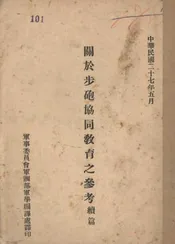 101
中華民國二十七年五月
關於步砲協同教育之參考續篇
軍事委員會軍訓部軍學編譯處譯印